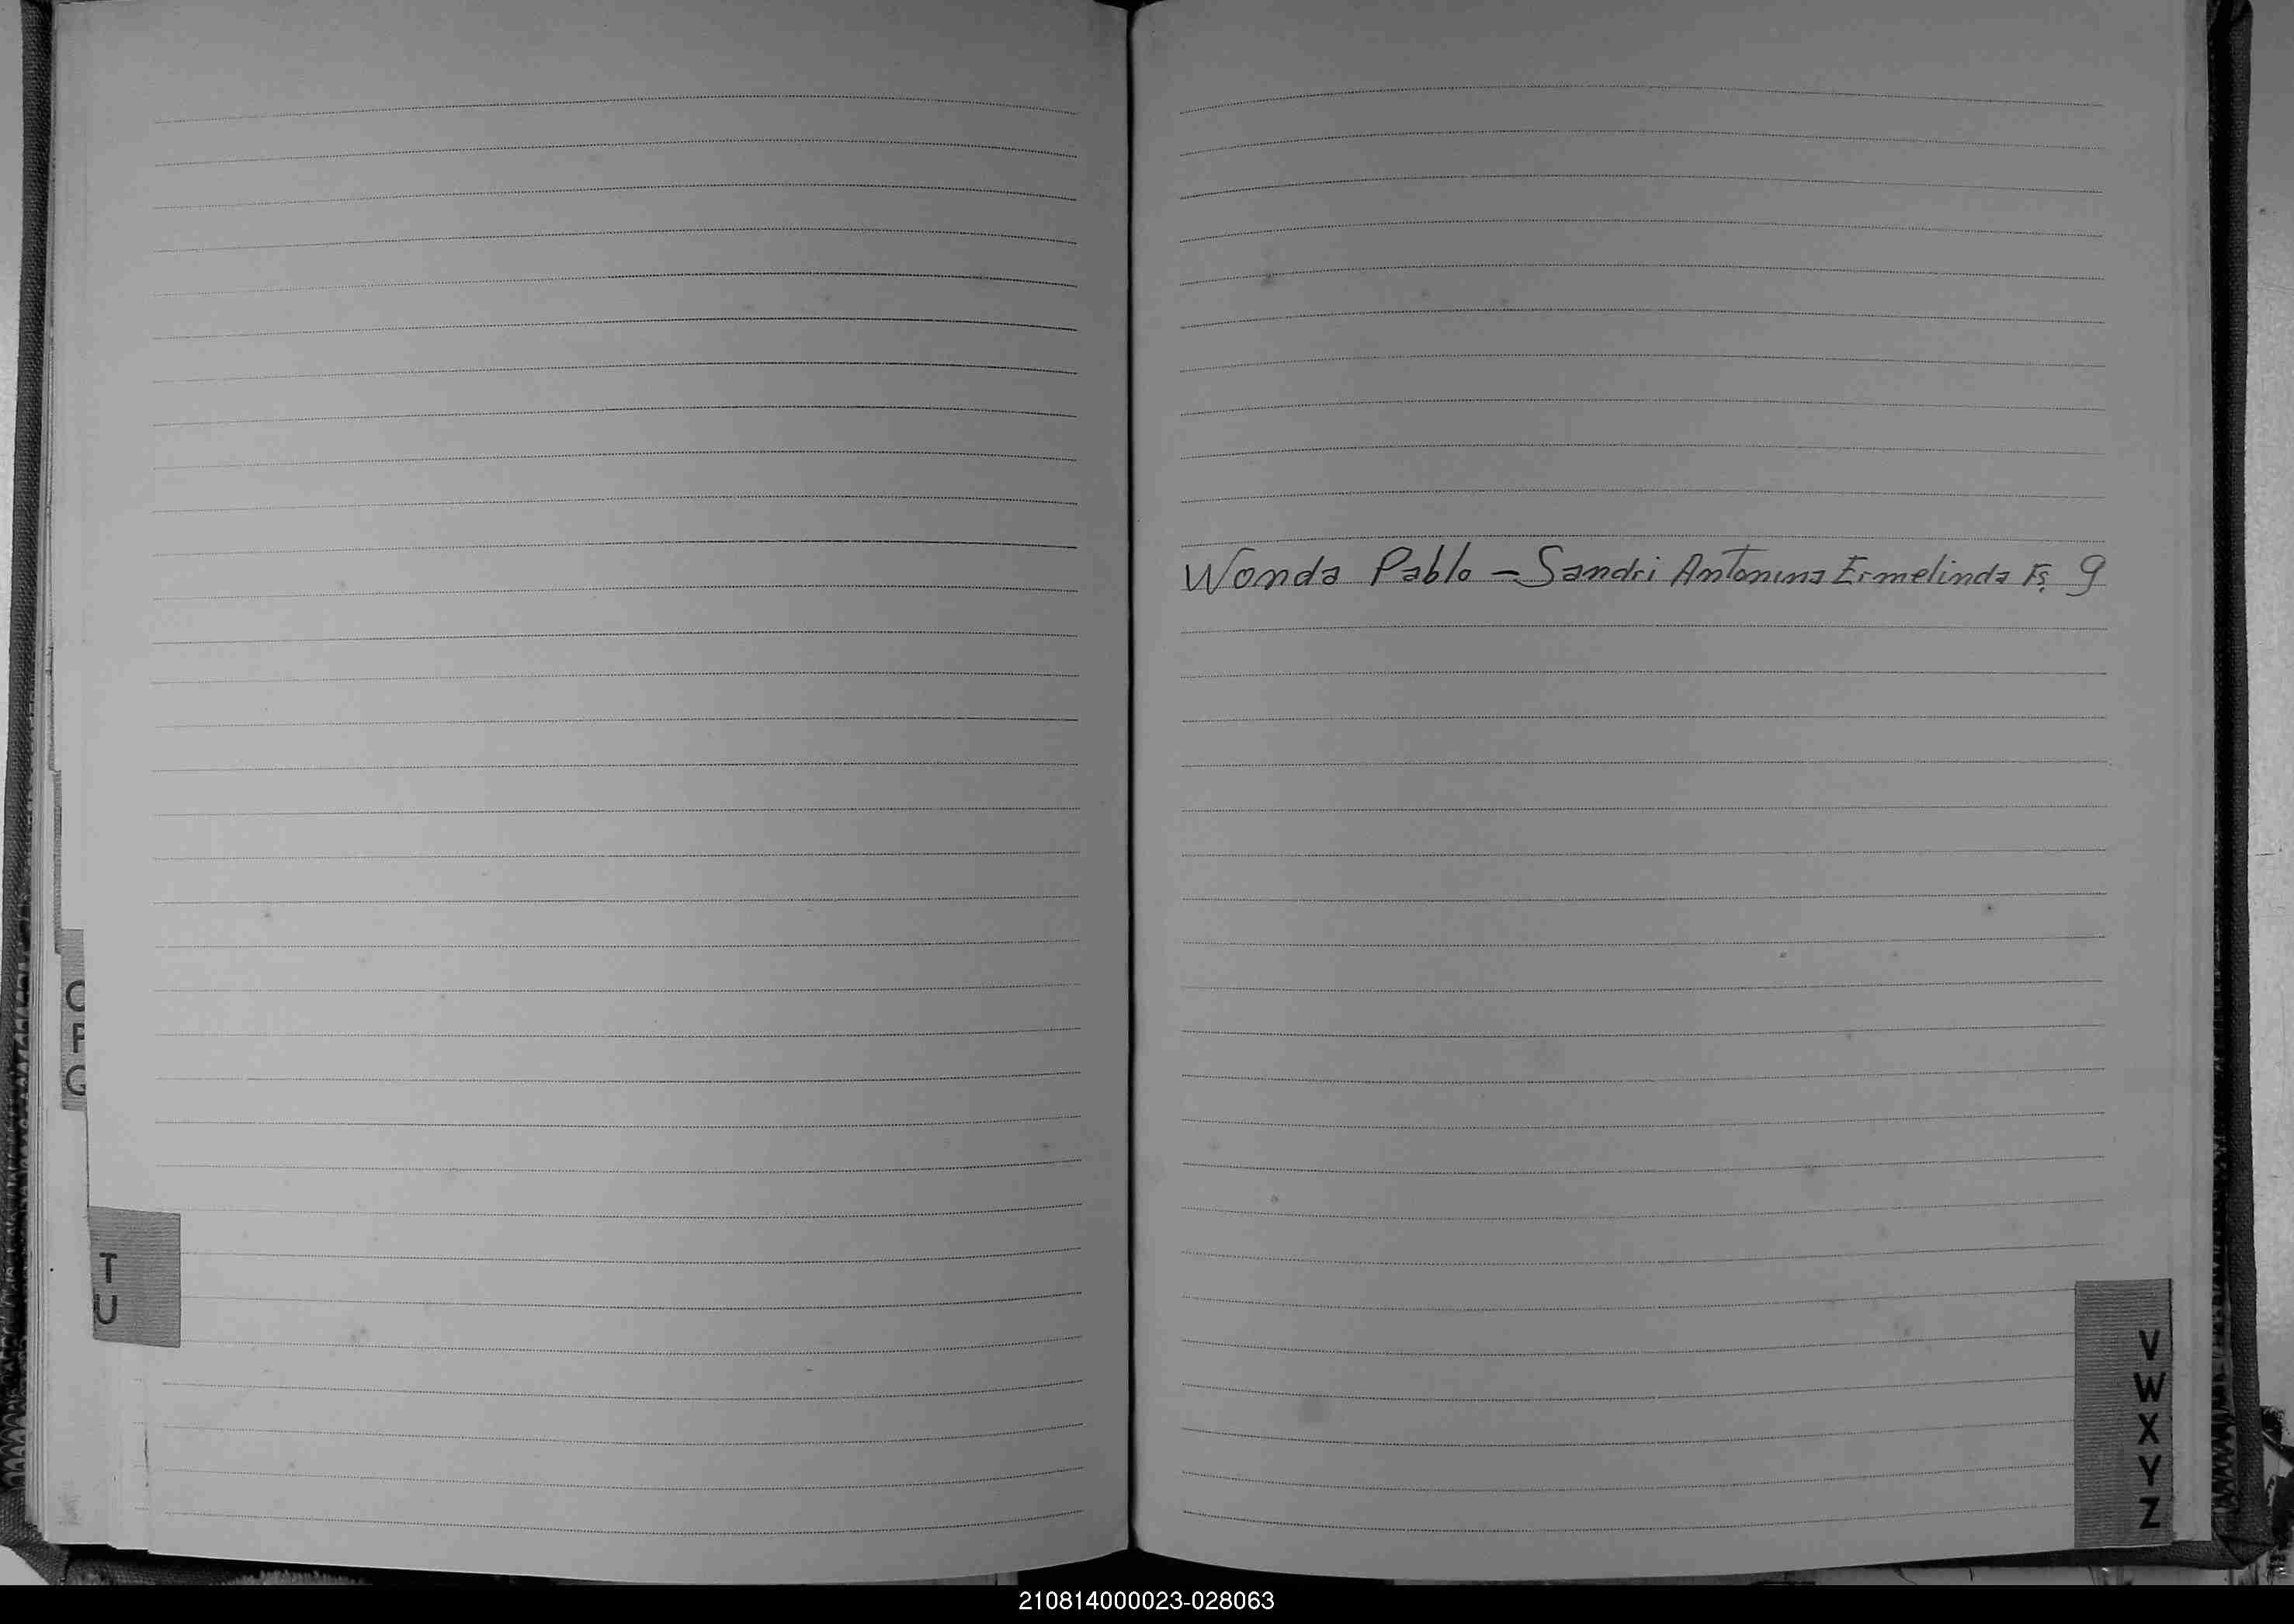 Wonda Pablo - Sandri Antonina Ermelinda Fs. 9
O
P
Q
T
U
V
W
X
Y
Z
210814000023-028063